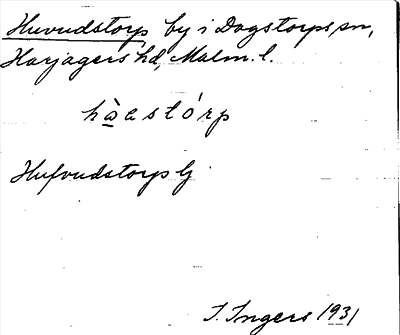 Huvudstorp by i Dagstorps sn,
Harjagers hd, Malm. l.
hàastórp
Hufvudstorps by
I. Ingers 1931